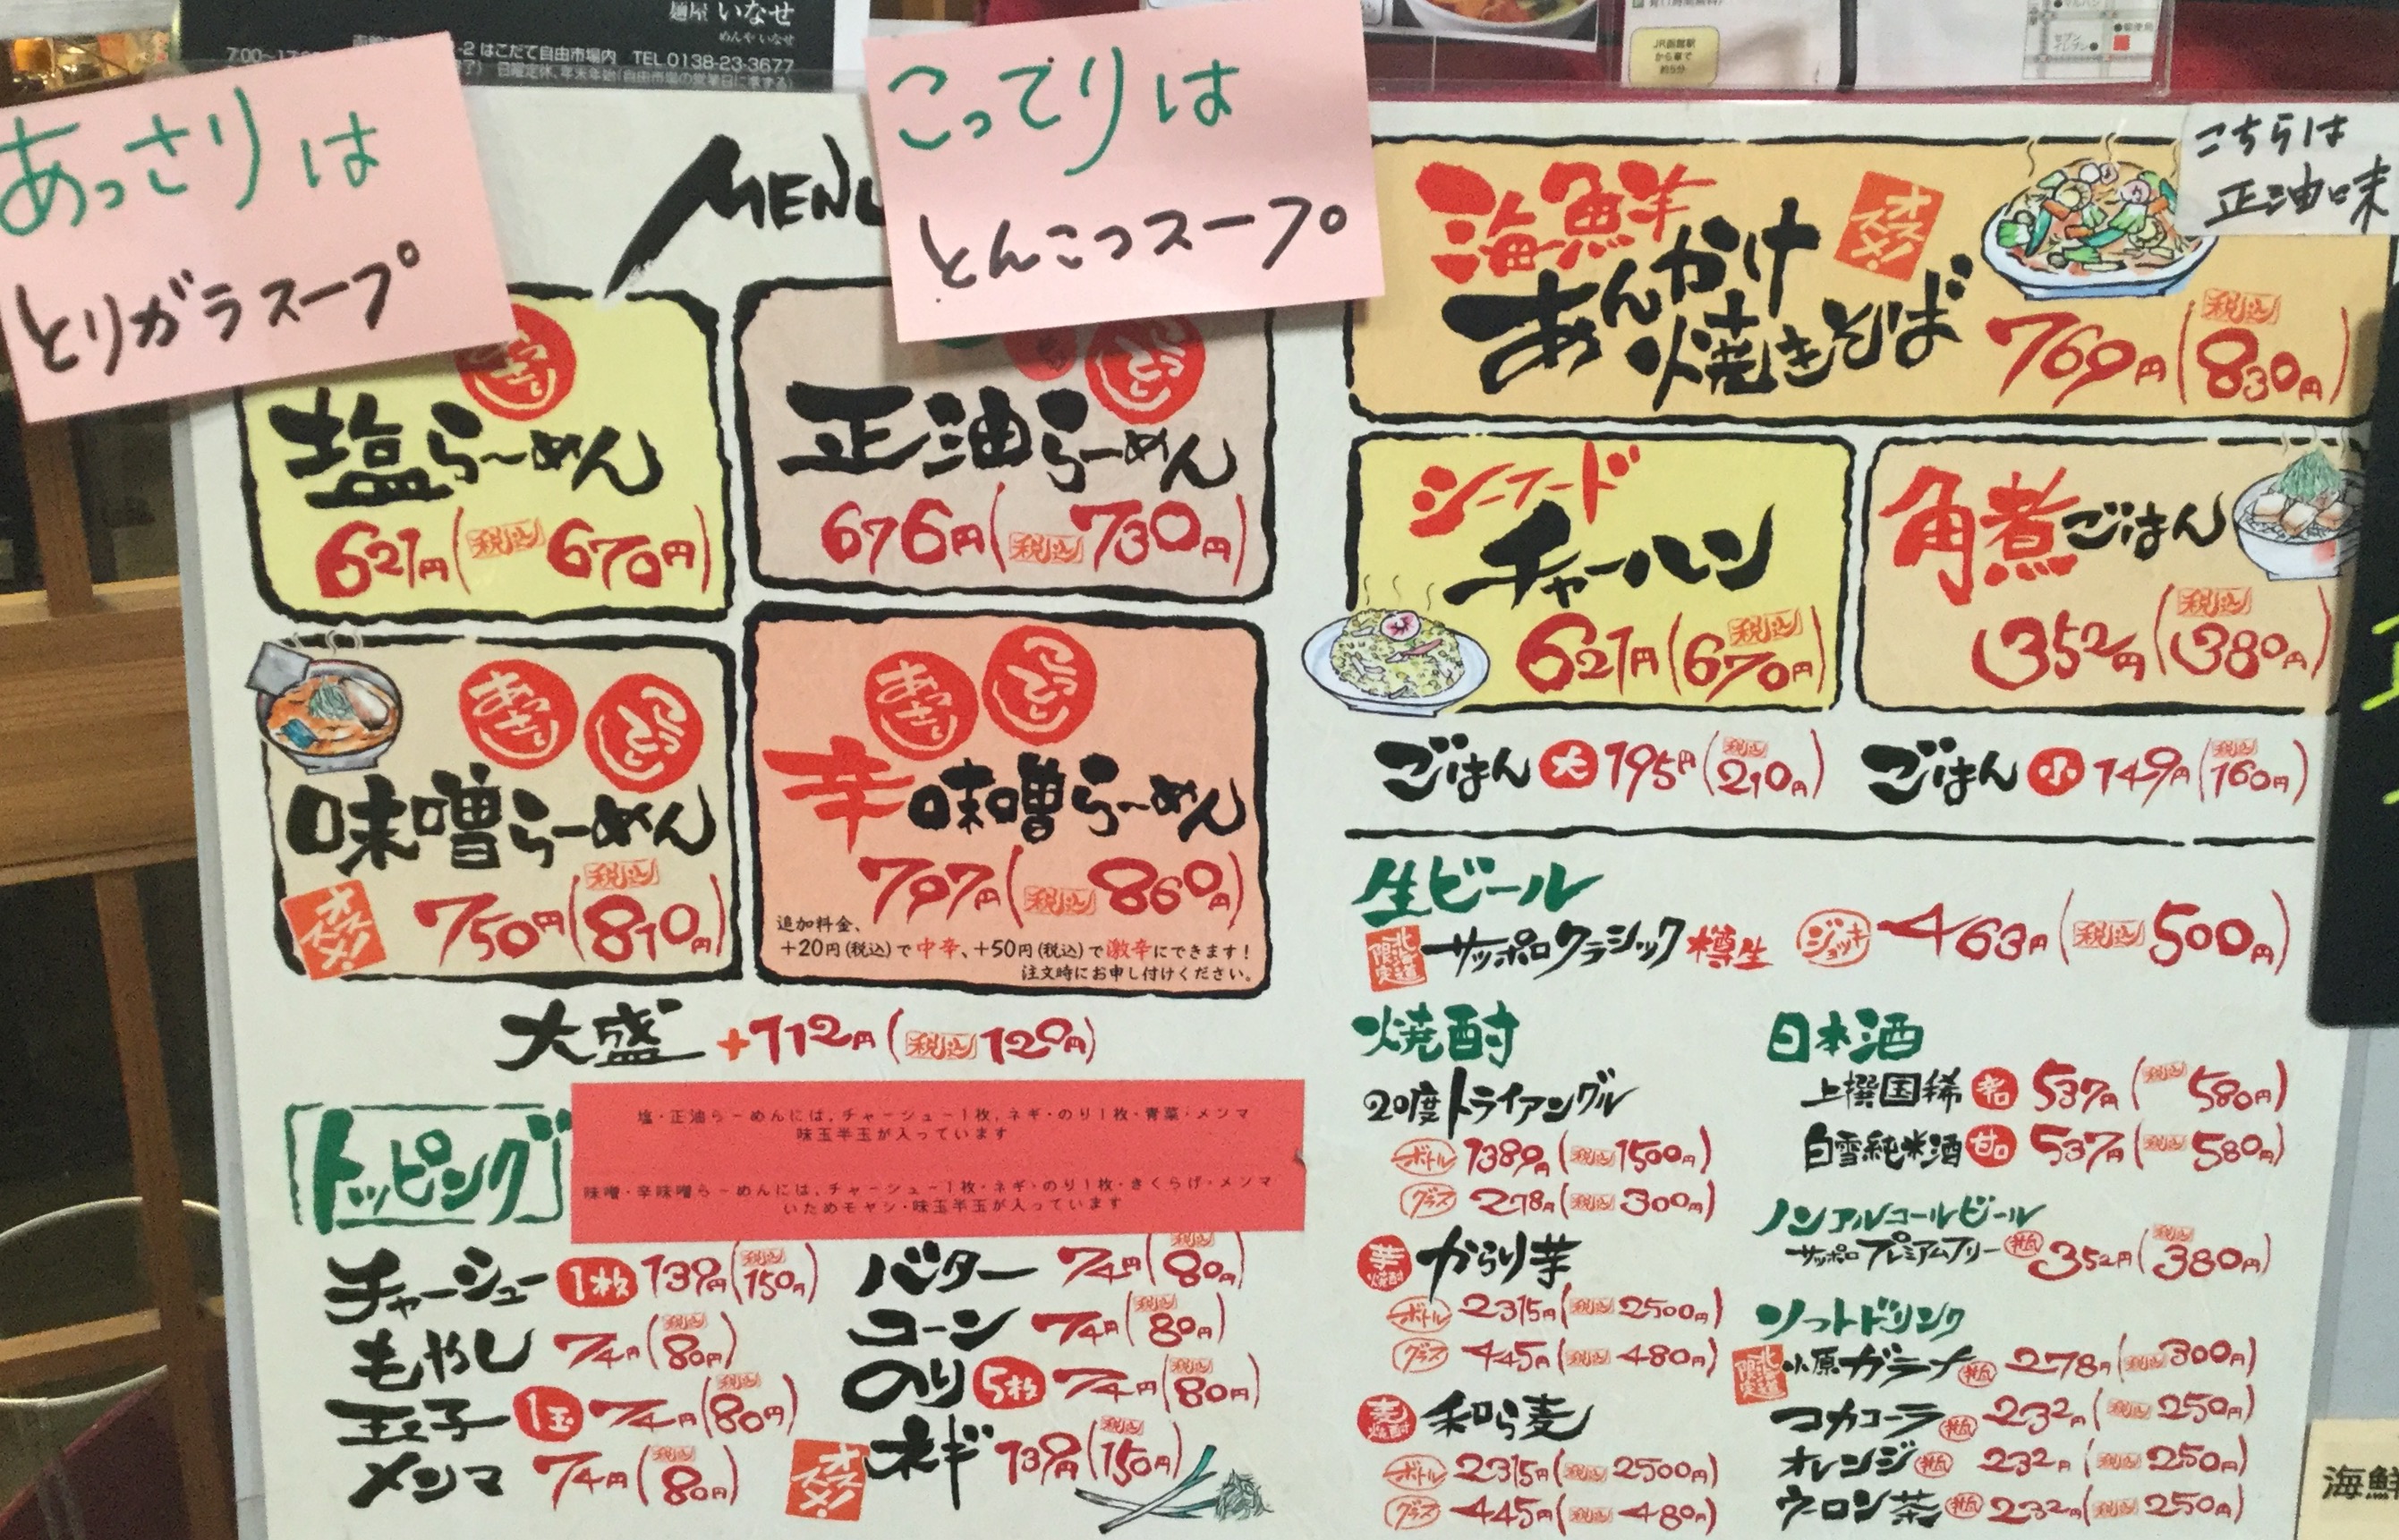 麺屋 いなせ
めんや いなせ
-2 はこだて自由市場内 TEL 0138-23-3677
日曜定休、年末年始(自由市場の営業日に準ずる)
JR函館駅
から車で
約5分
セブン
イレブン
郵便局
あっさりは
とりガラスープ
こってりは
とんこつスープ
MENU
塩らーめん
621円(税込670円)
こってり
正油らーめん
676円(税込730円)
あっさり こってり
味噌らーめん
オススメ!
750円(税込810円)
あっさり こってり
辛味噌らーめん
797円(税込860円)
追加料金、
+20円(税込)で中辛、+50円(税込)で激辛にできます!
注文時にお申し付けください。
大盛 +112円(税込120円)
トッピング
塩・正油らーめんには、チャーシュー1枚、ネギ・のり1枚・青菜・メンマ
味玉半玉が入っています
味噌・辛味噌らーめんには、チャーシュー1枚・ネギ・のり1枚・きくらげ・メンマ
いためモヤシ・味玉半玉が入っています
チャーシュー 1枚 139円(税込150円)
もやし 74円(税込80円)
玉子 1玉 74円(税込80円)
メンマ 74円(税込80円)
バター 74円(税込80円)
コーン 74円(税込80円)
のり 5枚 74円(税込80円)
オススメ! ネギ 139円(税込150円)
こちらは
正油味
海鮮
あんかけ
焼きそば
オススメ!
769円(税込830円)
シーフード
チャーハン
621円(税込670円)
角煮ごはん
352円(税込380円)
ごはん 大 195円(税込210円)
ごはん 小 149円(税込160円)
生ビール
北海道限定 サッポロクラシック 樽生 ジョッキ 463円(税込500円)
焼酎
20度トライアングル
ボトル 1389円(税込1500円)
グラス 278円(税込300円)
芋焼酎 からり芋
ボトル 2315円(税込2500円)
グラス 445円(税込480円)
麦焼酎 和ら麦
ボトル 2315円(税込2500円)
グラス 445円(税込480円)
日本酒
上撰国稀 辛口 537円(税込580円)
白雪純米酒 甘口 537円(税込580円)
ノンアルコールビール
サッポロ プレミアムフリー 瓶 352円(税込380円)
ソフトドリンク
北海道限定 小原ガラナ 瓶 278円(税込300円)
コカコーラ 瓶 232円(税込250円)
オレンジ 瓶 232円(税込250円)
ウーロン茶 瓶 232円(税込250円)
海鮮